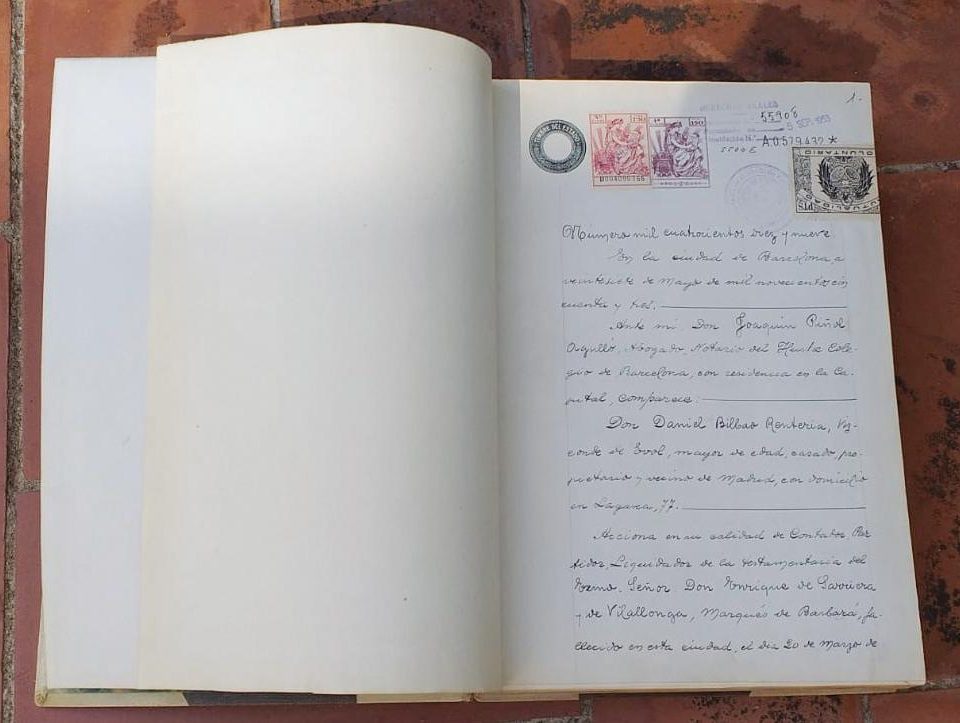 1.
TIMBRE DEL ESTADO
1'50
1'50
B004000966
DERECHOS REALES
55906
5 SEP. 1953
Liquidación Nº
A.0579432 *
55906
VOLUNTARIO
PTS
Número mil cuatrocientos diez y nueve.
En la ciudad de Barcelona, a
veintisiete de Mayo de mil novecientos cin
cuenta y tres.
Ante mi Don Joaquin Piñol
Agulló, Abogado, Notario del Ilustre Cole-
gio de Barcelona, con residencia en la Ca-
pital comparece:
Don Daniel Bilbao Renteria, Viz-
conde de Evol, mayor de edad, casado, pro-
pietario y vecino de Madrid, con domicilio
en Lagasca, 77.
Acciona en su calidad de Contador Par
tidor, Liquidador de la testamentaria del
Excmo. Señor Don Enrique de Sarriera
y de Vilallonga, Marqués de Barbará, fa-
llecido en esta ciudad, el dia 20 de Marzo de